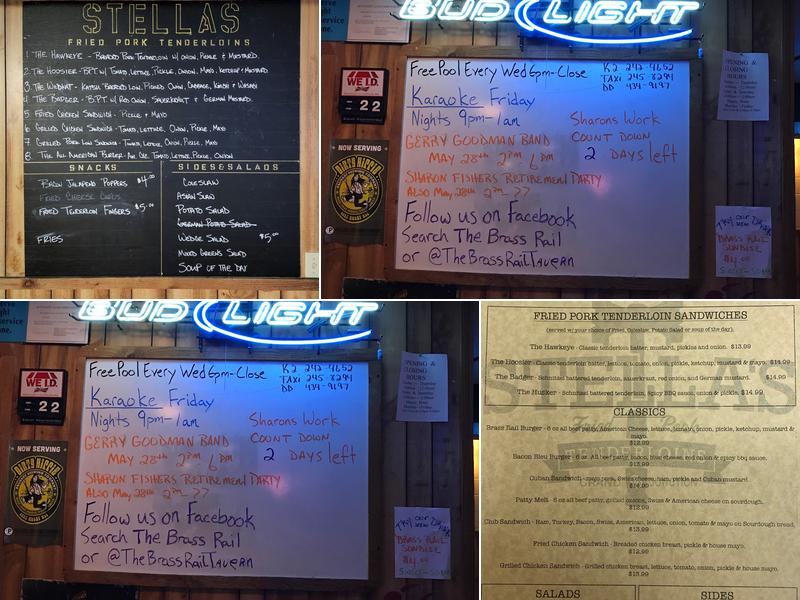 STELLAS
FRIED PORK TENDERLOINS
1. THE HAWKEYE - BREADED PORK TENDERLOIN W/ ONION, PICKLE & MUSTARD.
2. THE HOOSIER - BPT W/ TOMATO, LETTUCE, PICKLE, ONION, MAYO, KETCHUP & MUSTARD.
4. THE BADGER - BPT W/ RED ONION, SAUERKRAUT & GERMAN MUSTARD.
5 FRIED CHICKEN SANDWICH - PICKLE & MAYO
6 GRILLED CHICKEN SANDWICH - TOMATO, LETTUCE, ONION, PICKLE, MAYO
7 GRILLED PORK LOIN SANDWICH - TOMATO, LETTUCE, ONION, PICKLE, MAYO
8 THE ALL AMERICAN BURGER - TOMATO, LETTUCE, PICKLE, ONION
SNACKS
JALAPENO POPPERS $4.00
FRIED CHEESE CURDS
FRIED TENDERLOIN FINGERS $5.00
FRIES
SIDES & SALADS
COLESLAW
ASIAN SLAW
POTATO SALAD
GERMAN POTATO SALAD
WEDGE SALAD $5.00
MIXED GREENS SALAD
SOUP OF THE DAY
BUD LIGHT
WE I.D.
22
NOW SERVING
DIRTY HIPPIE
Free Pool Every Wed 6pm-Close
K2 242-4652
TAXI 245-8294
DD 434-9197
Karaoke Friday
Nights 9pm-1am
Sharons Work
COUNT DOWN
2 DAYS left
GERRY GOODMAN BAND
MAY 28th 2pm 6pm
SHARON FISHERS RETIREMENT PARTY
ALSO MAY 28th 2pm-??
Follow us on Facebook
Search The Brass Rail
or @TheBrassRailTavern
OPENING &
CLOSING
HOURS
TRY OUR
NEW DRINK
BRASS RAIL
SUNRISE
$4.00
BUD LIGHT
WE I.D.
22
NOW SERVING
DIRTY HIPPIE
Free Pool Every Wed 6pm-Close
K2 242-4652
TAXI 245-8294
DD 434-9197
Karaoke Friday
Nights 9pm-1am
Sharons Work
COUNT DOWN
2 DAYS left
GERRY GOODMAN BAND
MAY 28th 2pm 6pm
SHARON FISHERS RETIREMENT PARTY
ALSO May 28th 2pm-??
Follow us on Facebook
Search The Brass Rail
or @TheBrassRailTavern
OPENING &
CLOSING
HOURS
TRY OUR
NEW DRINK
BRASS RAIL
SUNRISE
$4.00
FRIED PORK TENDERLOIN SANDWICHES
(served w/your choice of Fries, Coleslaw, Potato Salad or soup of the day).
The Hawkeye - Classic tenderloin batter, mustard, pickles and onion. $13.99
The Hoosier - Classic tenderloin batter, lettuce, tomato, onion, pickle, ketchup, mustard & mayo. $14.99
The Badger - Schnitzel battered tenderloin, sauerkraut, red onion, and German mustard. $14.99
The Husker - Schnitzel battered tenderloin, Spicy BBQ sauce, onion & pickle, $14.99
CLASSICS
Brass Rail Burger - 6 oz all beef patty, American Cheese, lettuce, tomato, onion, pickle, ketchup, mustard &
mayo.
$12.99
Bacon Bleu Burger - 6 oz. All beef patty, bacon, blue cheese, red onion & spicy bbq sauce.
$13.99
Cuban Sandwich - mayo pork, Swiss cheese, ham, pickle and Cuban mustard.
$14.99
Patty Melt - 6 oz all beef patty, grilled onions, Swiss & American cheese on sourdough.
$12.99
Club Sandwich - Ham, Turkey, Bacon, Swiss, American, lettuce, onion, tomato & mayo on Sourdough bread.
$13.99
Fried Chicken Sandwich - Breaded chicken breast, pickle & house mayo.
$12.99
Grilled Chicken Sandwich - Grilled chicken breast, lettuce, tomato, onion, pickle & house mayo.
$13.99
SALADS
SIDES